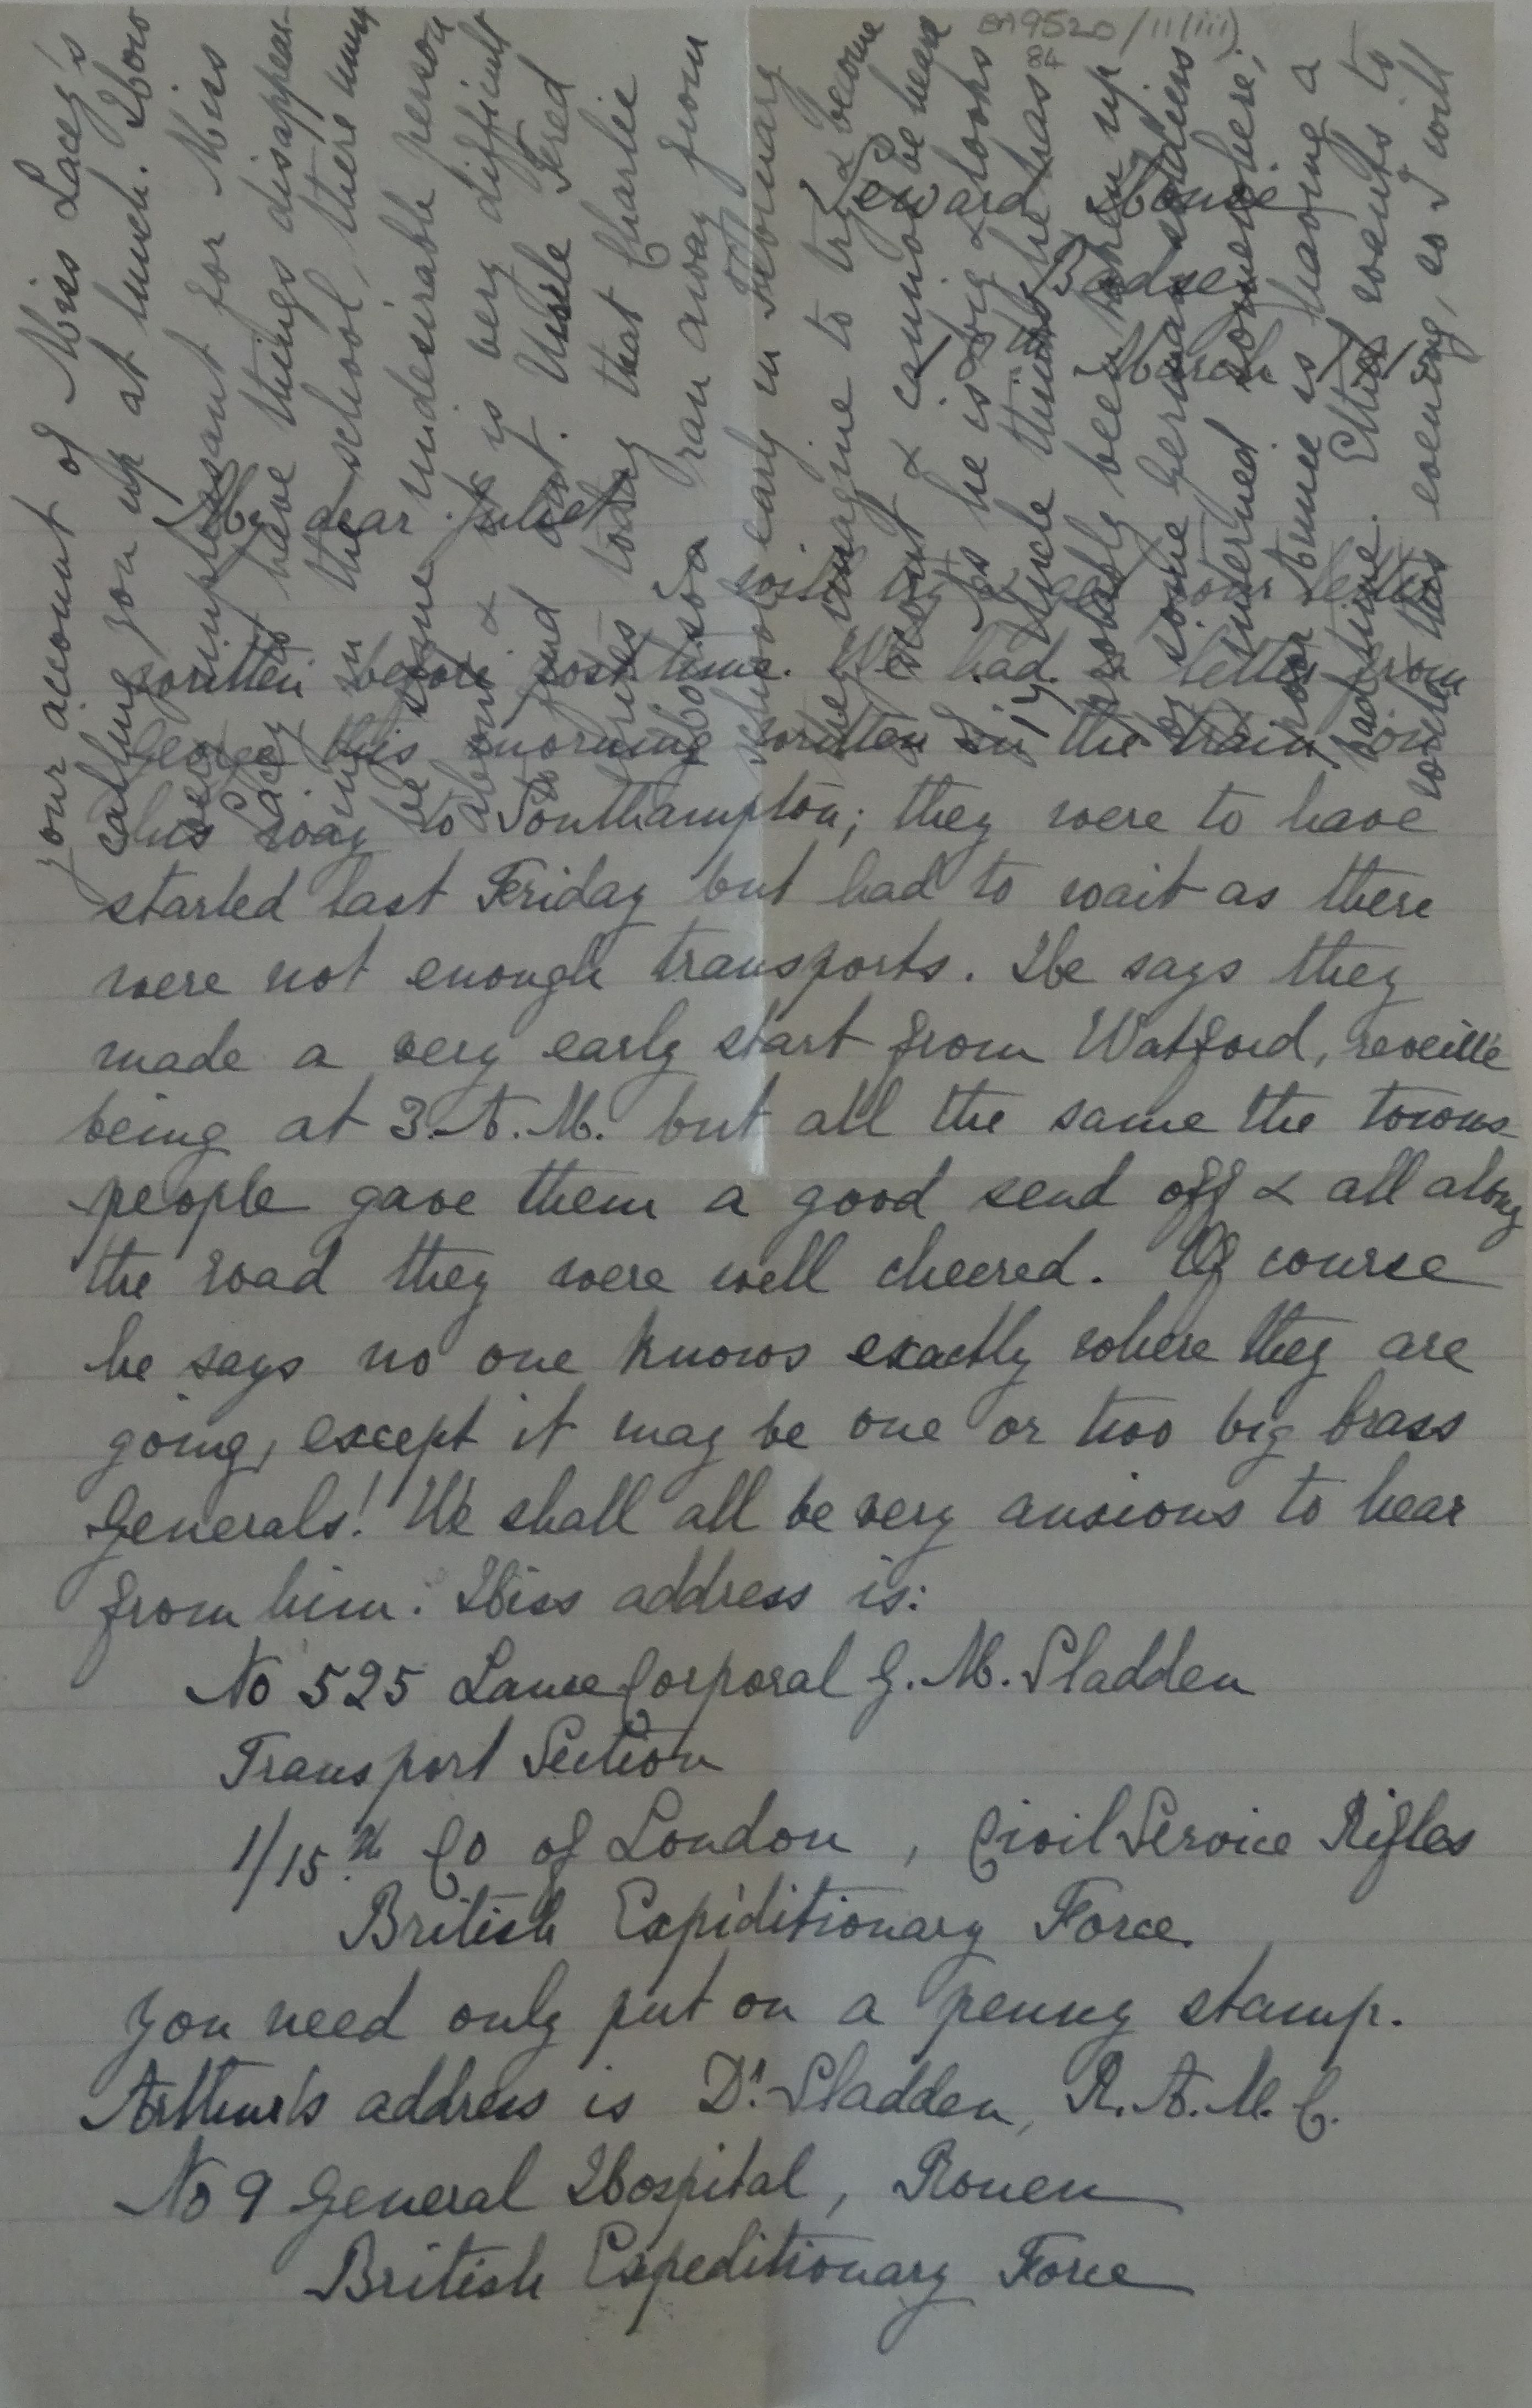 BA9520/11(iii)
84
Seward House
Badsey
March 17/15
My dear Juliet
I will try & get your letter
written before post time. We had a letter from
George this morning written in the train, on
his way to Southampton; they were to have
started last Friday but had to wait as there
were not enough transports. He says they
made a very early start from Watford, reveillé
being at 3.A.M. but all the same the towns-
people gave them a good send off & all along
the road they were well cheered. Of course
he says no one knows exactly where they are
going, except it may be one or two big brass
Generals! We shall all be very anxious to hear
from him. Hiss address is:
No 525 Lance Corporal G. M. Sladden
Transport Section
1/15.th Co of London, Civil Service Rifles
British Expiditionary Force.
You need only put on a penny stamp.
Arthur's address is Dr. Sladden, R. A. M. C.
No 9 General Hospital, Rouen
British Expeditionary Force
your account of Miss Lacey's
catching you up at lunch. How
very unpleasant for Miss
Lacey to have things disappear-
ing in the school, there must
be some undesirable person
about & it is very difficult
to find out. Uncle Fred
writes today that Charlie
ran away from
school early in February
they imagine to try & become
a scout & cannot be heard
of. As he is big & looks
17 Uncle thinks he has
probably been taken up
by some German soldiers
interned somewhere;
poor Eunice is having a
bad time. Ethel wants to
write this evening, so I will